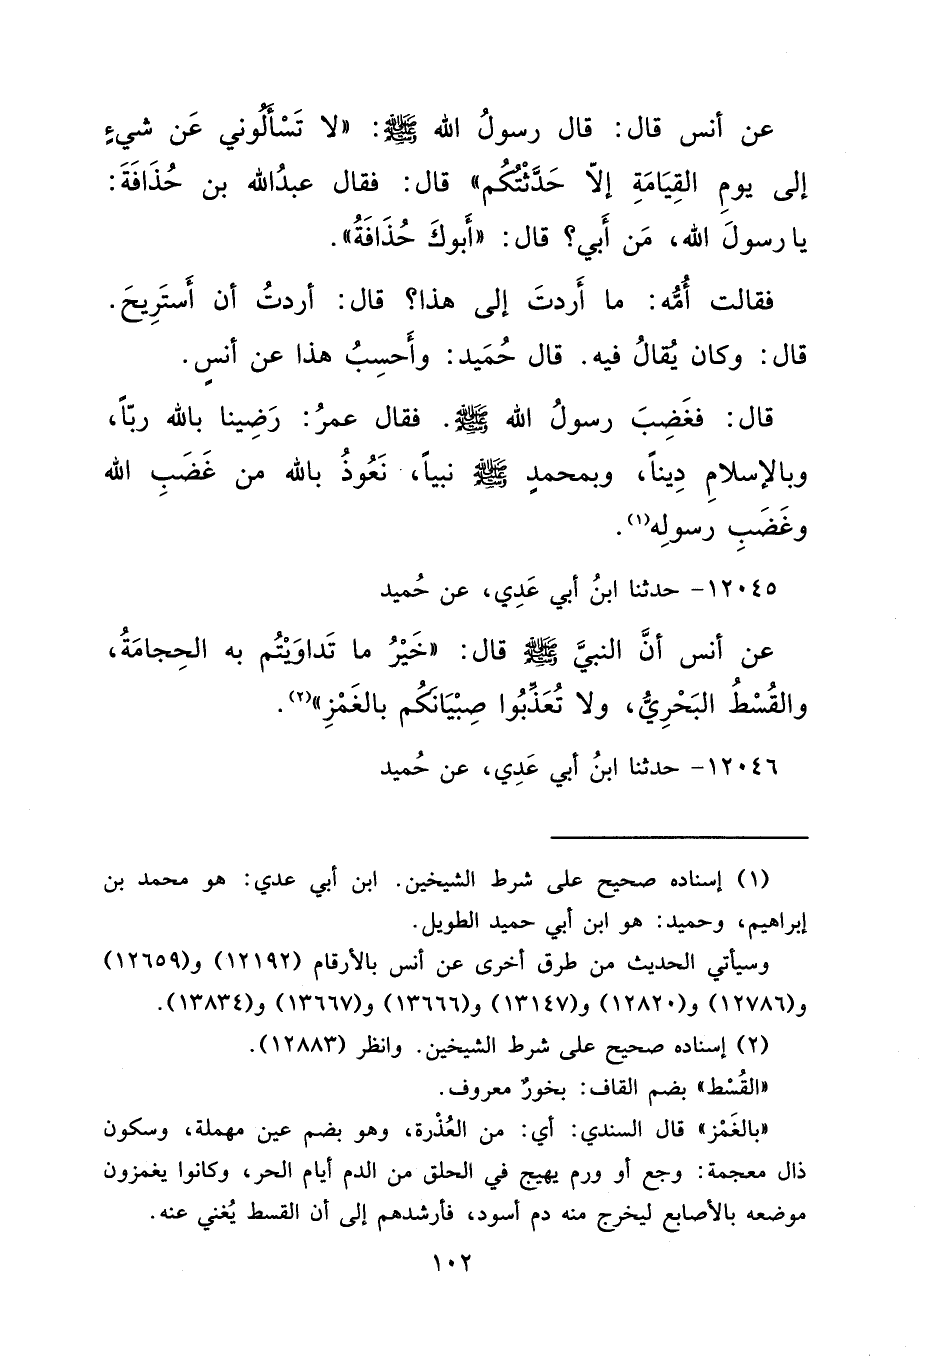 عن أنس قال: قال رسولُ الله ﷺ: «لا تَسْأَلُوني عَن شيءٍ
إلى يومِ القِيَامَةِ إلاّ حَدَّثْتُكُم» قال: فقال عبدُالله بن حُذَافَةَ:
يا رسولَ الله، مَن أَبي؟ قال: «أَبوكَ حُذَافَةُ».
فقالت أُمُّه: ما أَردتَ إلى هذا؟ قال: أردتُ أن أَستَرِيحَ.
قال: وكان يُقالُ فيه. قال حُمَيد: وأَحسِبُ هذا عن أنسٍ.
قال: فغَضِبَ رسولُ الله ﷺ. فقال عمرُ: رَضِينا بالله ربّاً،
وبالإسلامِ دِيناً، وبمحمدٍ ﷺ نبياً، نَعُوذُ بالله من غَضَبِ الله
وغَضَبِ رسولِه(١).
١٢٠٤٥- حدثنا ابنُ أبي عَدِي، عن حُميد
عن أنس أنَّ النبيَّ ﷺ قال: «خَيْرُ ما تَداوَيْتُم به الحِجامَةُ،
والقُسْطُ البَحْرِيُّ، ولا تُعَذِّبُوا صِبْيَانَكُم بالغَمْزِ»(٢).
١٢٠٤٦- حدثنا ابنُ أبي عَدِي، عن حُميد
(١) إسناده صحيح على شرط الشيخين. ابن أبي عدي: هو محمد بن
إبراهيم، وحميد: هو ابن أبي حميد الطويل.
وسيأتي الحديث من طرق أخرى عن أنس بالأرقام (١٢١٩٢) و(١٢٦٥٩)
و(١٢٧٨٦) و(١٢٨٢٠) و(١٣١٤٧) و(١٣٦٦٦) و(١٣٦٦٧) و(١٣٨٣٤).
(٢) إسناده صحيح على شرط الشيخين. وانظر (١٢٨٨٣).
«القُسْط» بضم القاف: بخورٌ معروف.
«بالغَمْز» قال السندي: أي: من العُذْرة، وهو بضم عين مهملة، وسكون
ذال معجمة: وجع أو ورم يهيج في الحلق من الدم أيام الحر، وكانوا يغمزون
موضعه بالأصابع ليخرج منه دم أسود، فأرشدهم إلى أن القسط يُغني عنه.
١٠٢